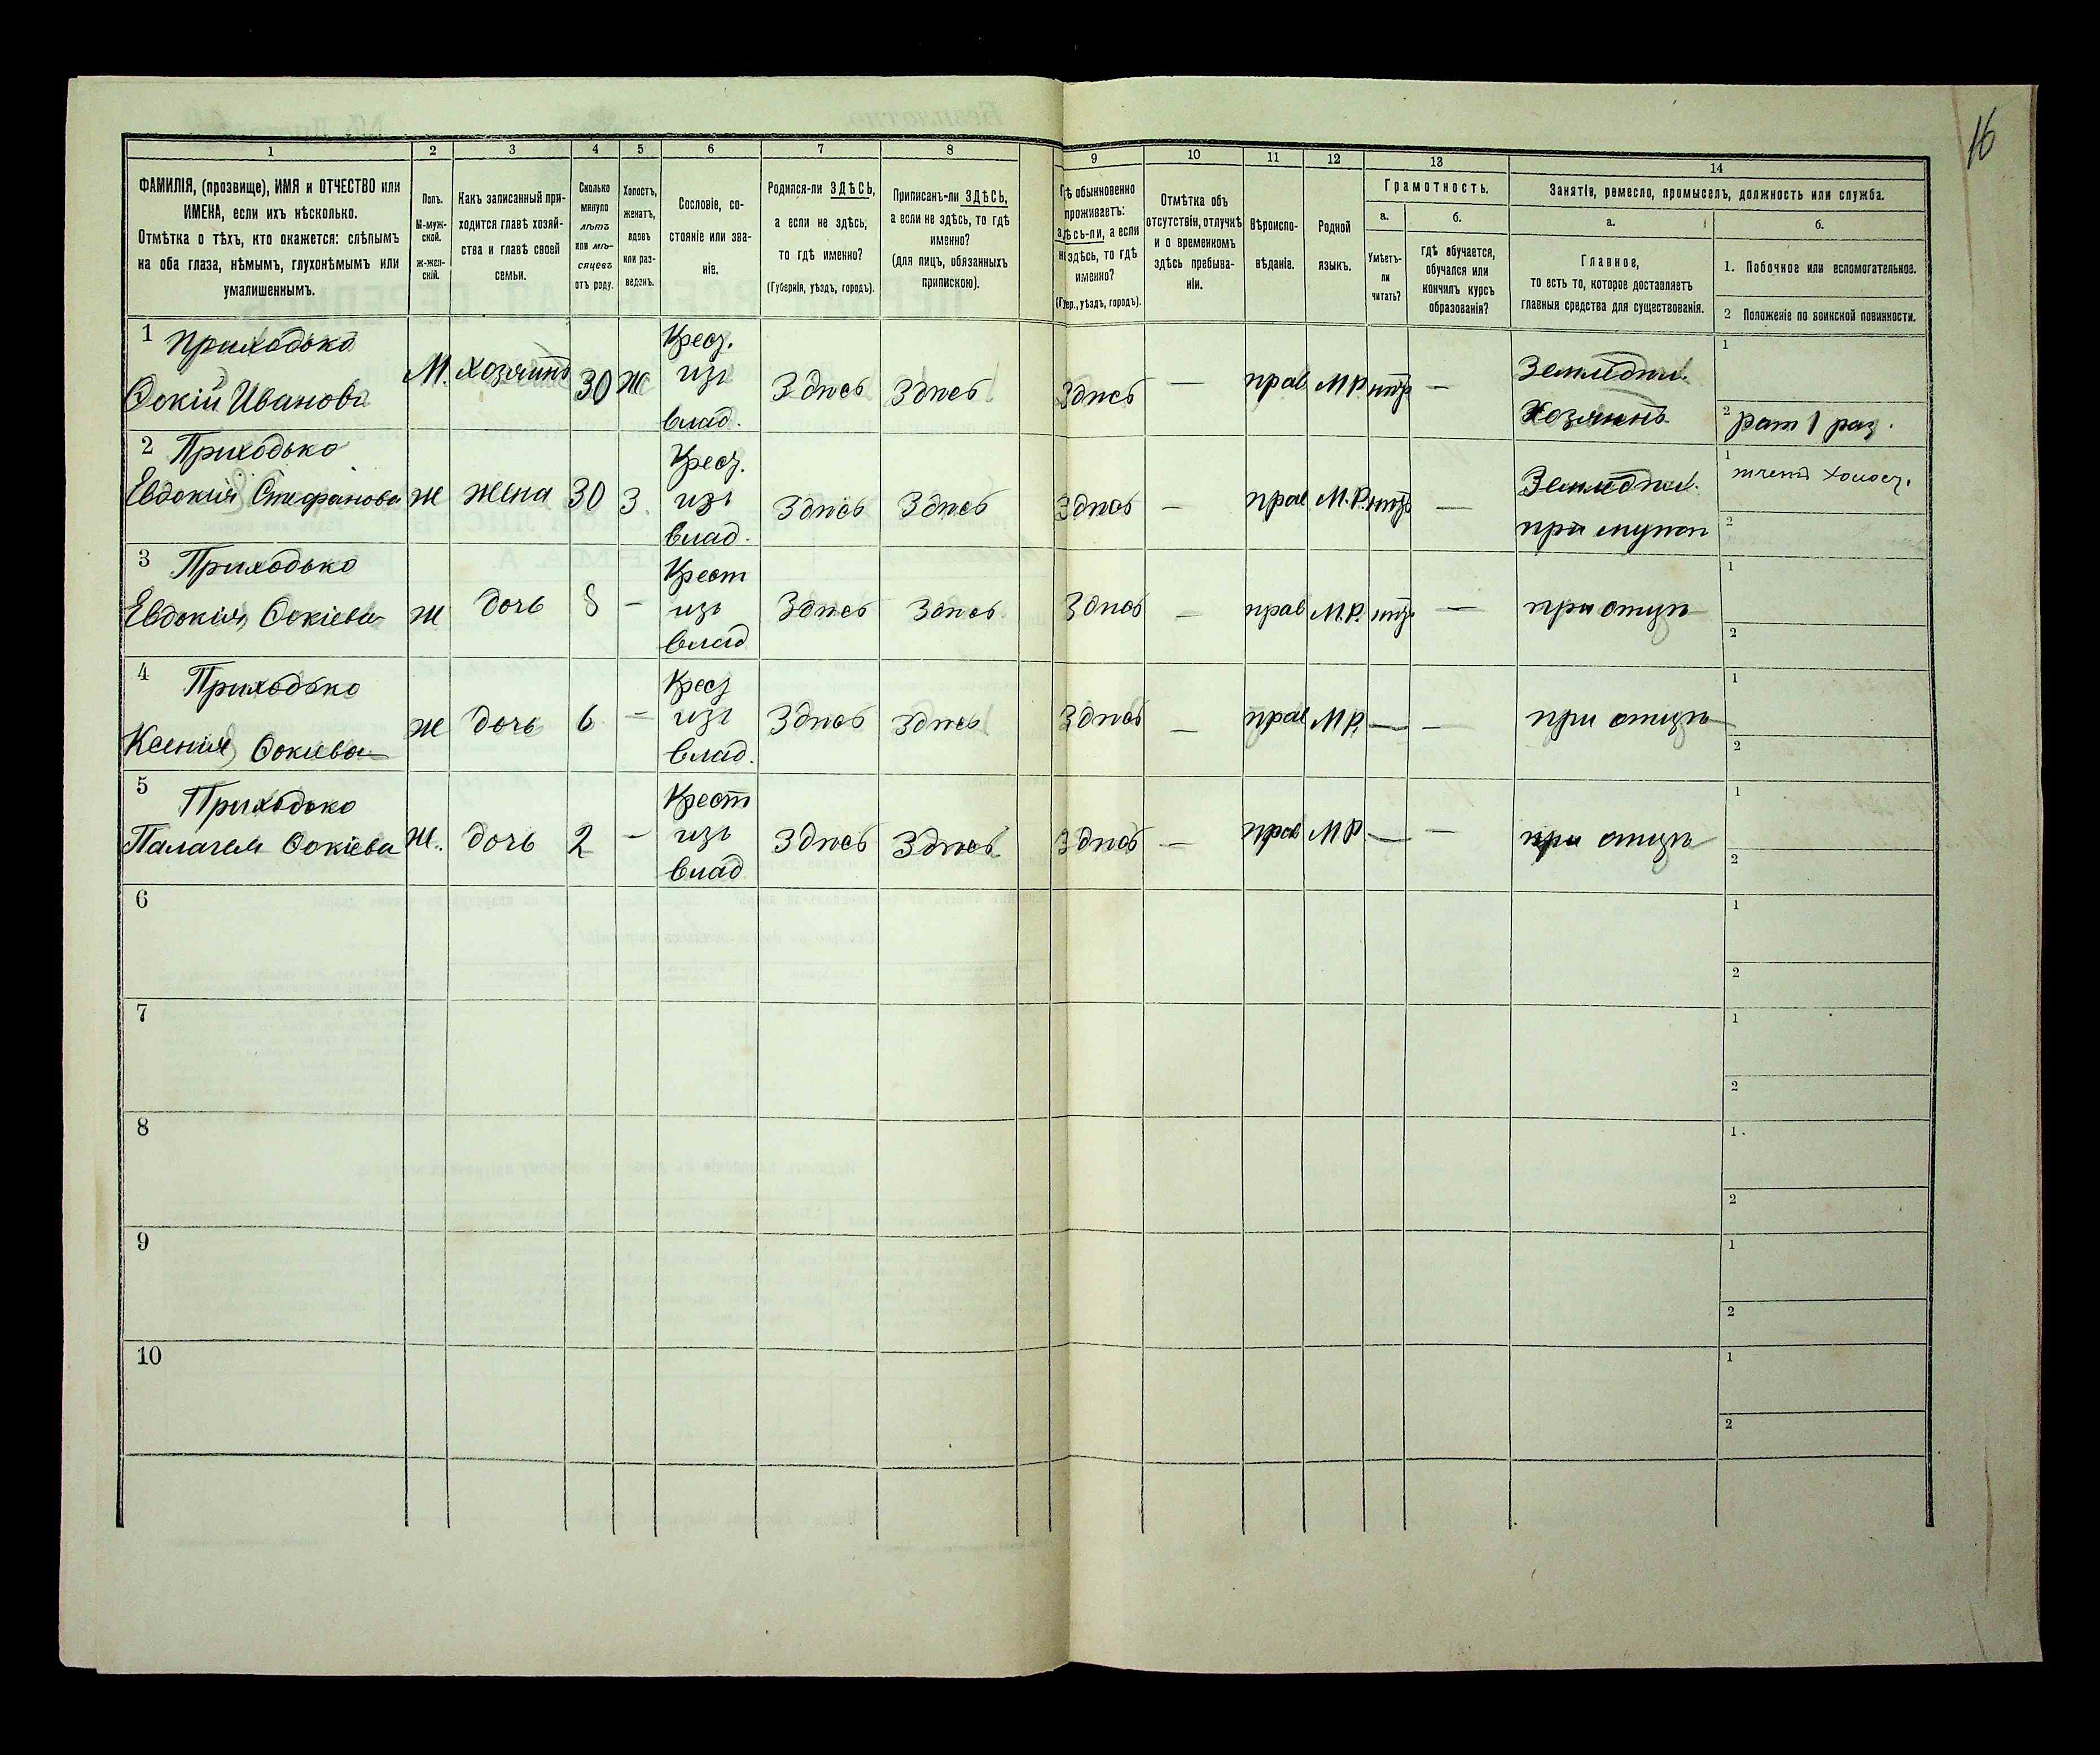 16
1 2 3 4 5 6 7 8 9 10 11 12 13 14
ФАМИЛІЯ, (прозвище), ИМЯ и ОТЧЕСТВО или
ИМЕНА, если ихъ нѣсколько.
Отмѣтка о тѣхъ, кто окажется: слѣпымъ
на оба глаза, нѣмымъ, глухонѣмымъ или
умалишеннымъ.
Полъ.
М-муж-
ской.
ж-жен-
скій.
Какъ записанный при-
ходится главѣ хозяй-
ства и главѣ своей
семьи.
Сколько
минуло
лѣтъ
или мѣ-
сяцевъ
отъ роду.
Холостъ,
женатъ,
вдовъ
или раз-
веденъ.
Сословіе, со-
стояніе или зва-
ніе.
Родился-ли ЗДѢСЬ,
а если не здѣсь,
то гдѣ именно?
(Губернія, уѣздъ, городъ).
Приписанъ-ли ЗДѢСЬ,
а если не здѣсь, то гдѣ
именно?
(для лицъ, обязанныхъ
припискою).
Гдѣ обыкновенно
проживаетъ:
здѣсь-ли, а если
не здѣсь, то гдѣ
именно?
(Губер., уѣздъ, городъ).
Отмѣтка объ
отсутствіи, отлучкѣ
и о временномъ
здѣсь пребыва-
ніи.
Вѣроиспо-
вѣданіе.
Родной
языкъ.
Грамотность.
а.
Умѣетъ-
ли
читать?
б.
гдѣ обучается,
обучался или
кончилъ курсъ
образованія?
Занятіе, ремесло, промыселъ, должность или служба.
а.
Главное,
то есть то, которое доставляетъ
главныя средства для существованія.
б.
1. Побочное или вспомогательное.
2 Положеніе по воинской повинности.
1 Приходько
Фокій Ивановъ М. хозяинъ 30 ж Крес. изъ влад. Здѣсь Здѣсь Здѣсь — прав М.Р. нтъ — Землидѣл. Хозяинъ
1
2 рат 1 раз.
2 Приходько
Евдокия Стефанова ж жена 30 З. Крес. изъ влад. Здѣсь Здѣсь Здѣсь — прав М.Р. нтъ — Землидѣл. при мужѣ
1
2
3 Приходько
Евдокия Фокіева ж дочь 8 — Крест изъ влад Здѣсь Здѣсь Здѣсь — прав М.Р. нтъ — при отцѣ
1
2
4 Приходько
Ксенія Фокиева ж дочь 6 — Крес изъ влад. Здѣсь Здѣсь Здѣсь — прав М.Р. — — при отцѣ
1
2
5 Приходько
Палагея Фокіева ж. дочь 2 — Крест изъ влад Здѣсь Здѣсь Здѣсь — прав М.Р. — — при отцѣ
1
2
6
1
2
7
1
2
8
1
2
9
1
2
10
1
2